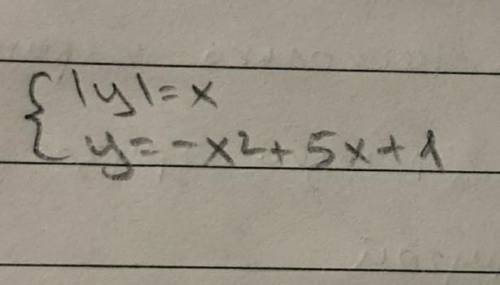 { |y|=x
y=-x²+5x+1